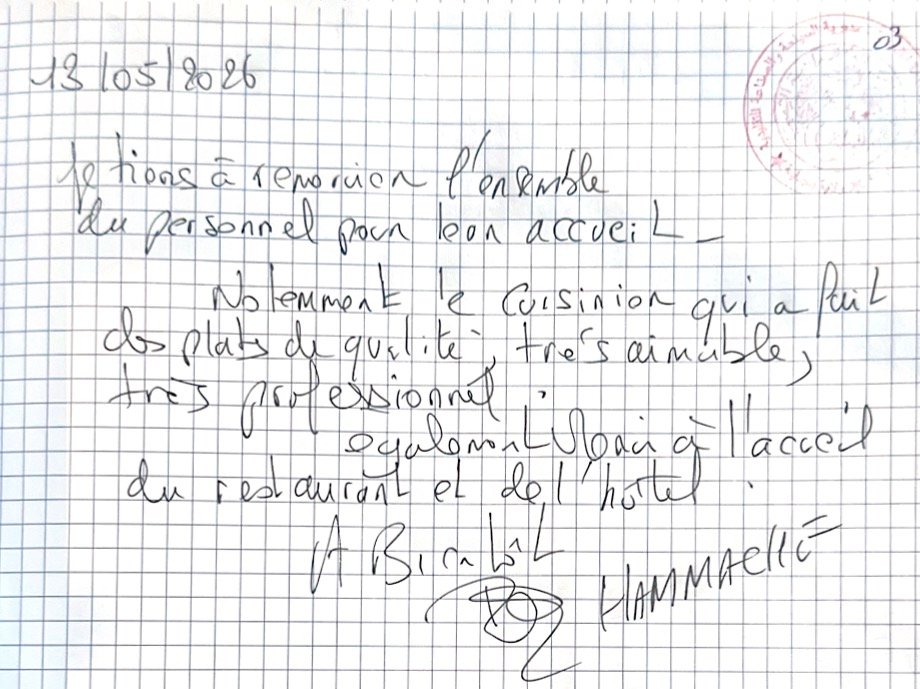 03
13/05/2026
Je tiens à remercier l'ensemble
du personnel pour leur accueil -
Notemment le cuisinier qui a fait
des plats de qualité, très aimable,
très professionnel.
egalement Merci à l'acceil
du restaurant et de l'hôtel.
A Bientôt